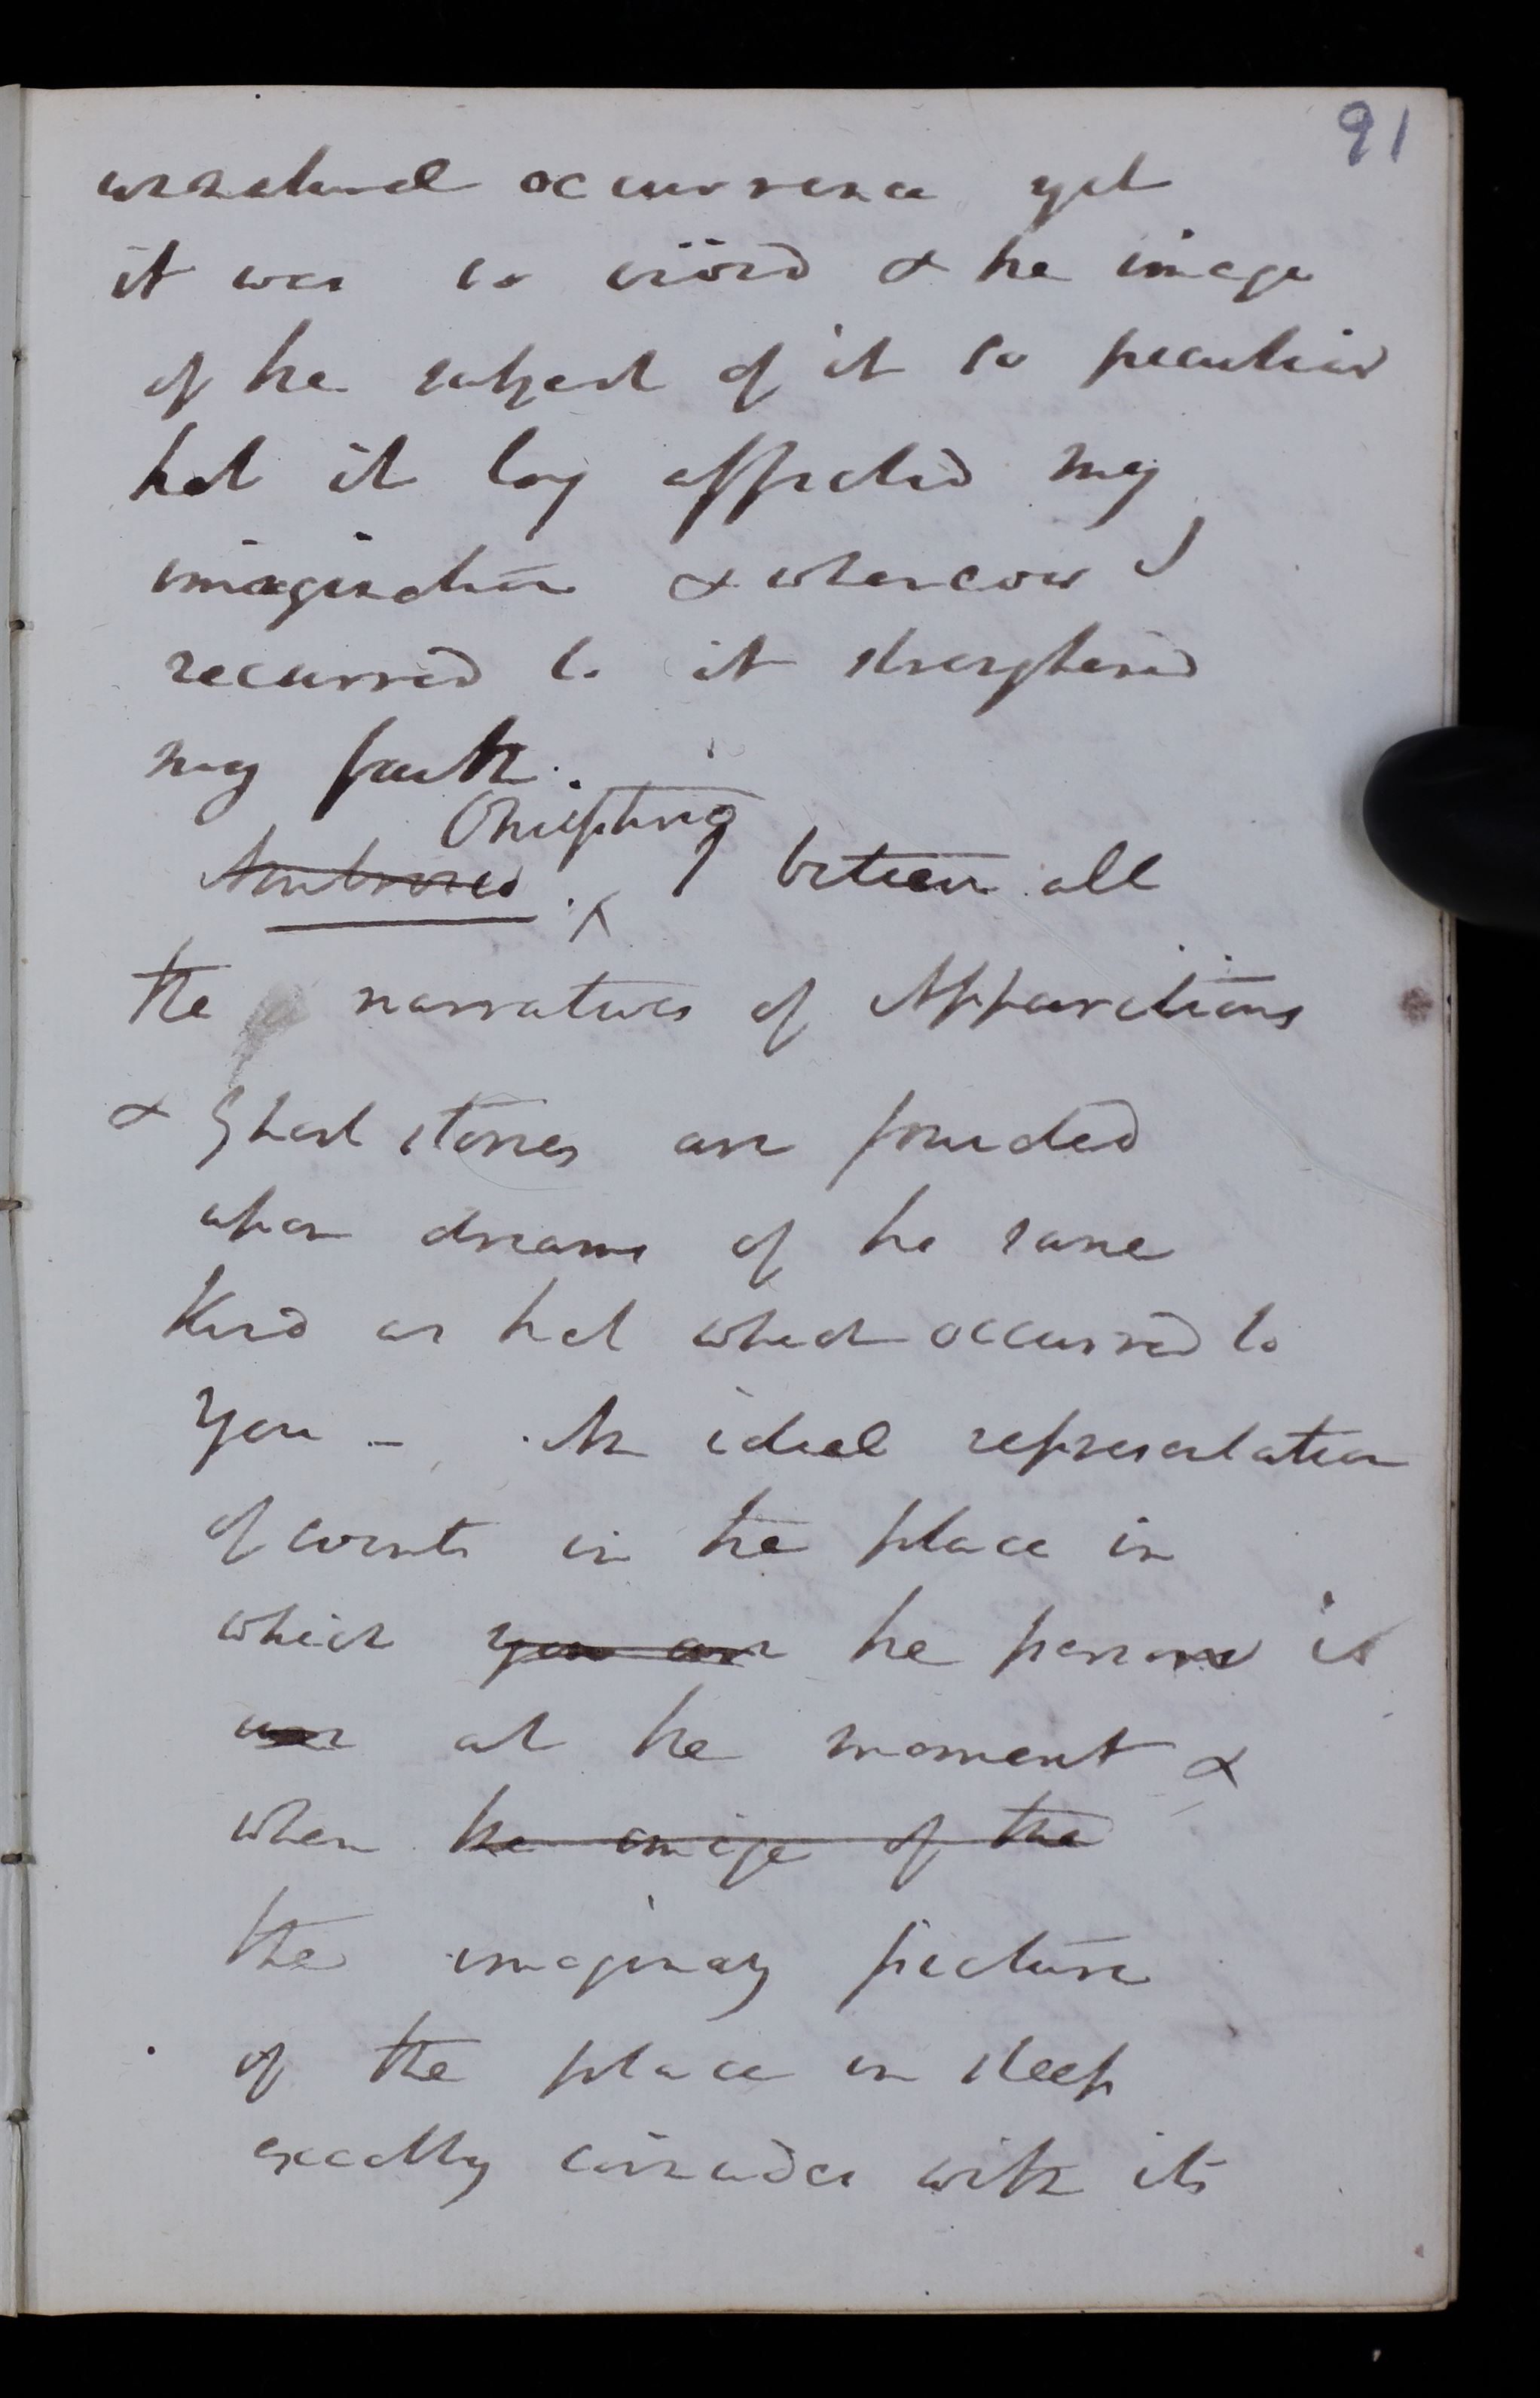 91
unnatural occurrence yet
it was so vivid & the image
of the subject of it so peculiar
that it long affected my
imagination & whenever I
recurred to it strengthened
my faith.
Onuphrio
Ambrosio . I believe all
the narratives of Apparitions
& Ghost stories are founded
upon dreams of the same
kind as that which occurred to
you - An ideal representation
of events in the place in
which you are the person is
was at the moment &
when the image of the
the imaginary picture
of the place in sleep
exactly coincides with its